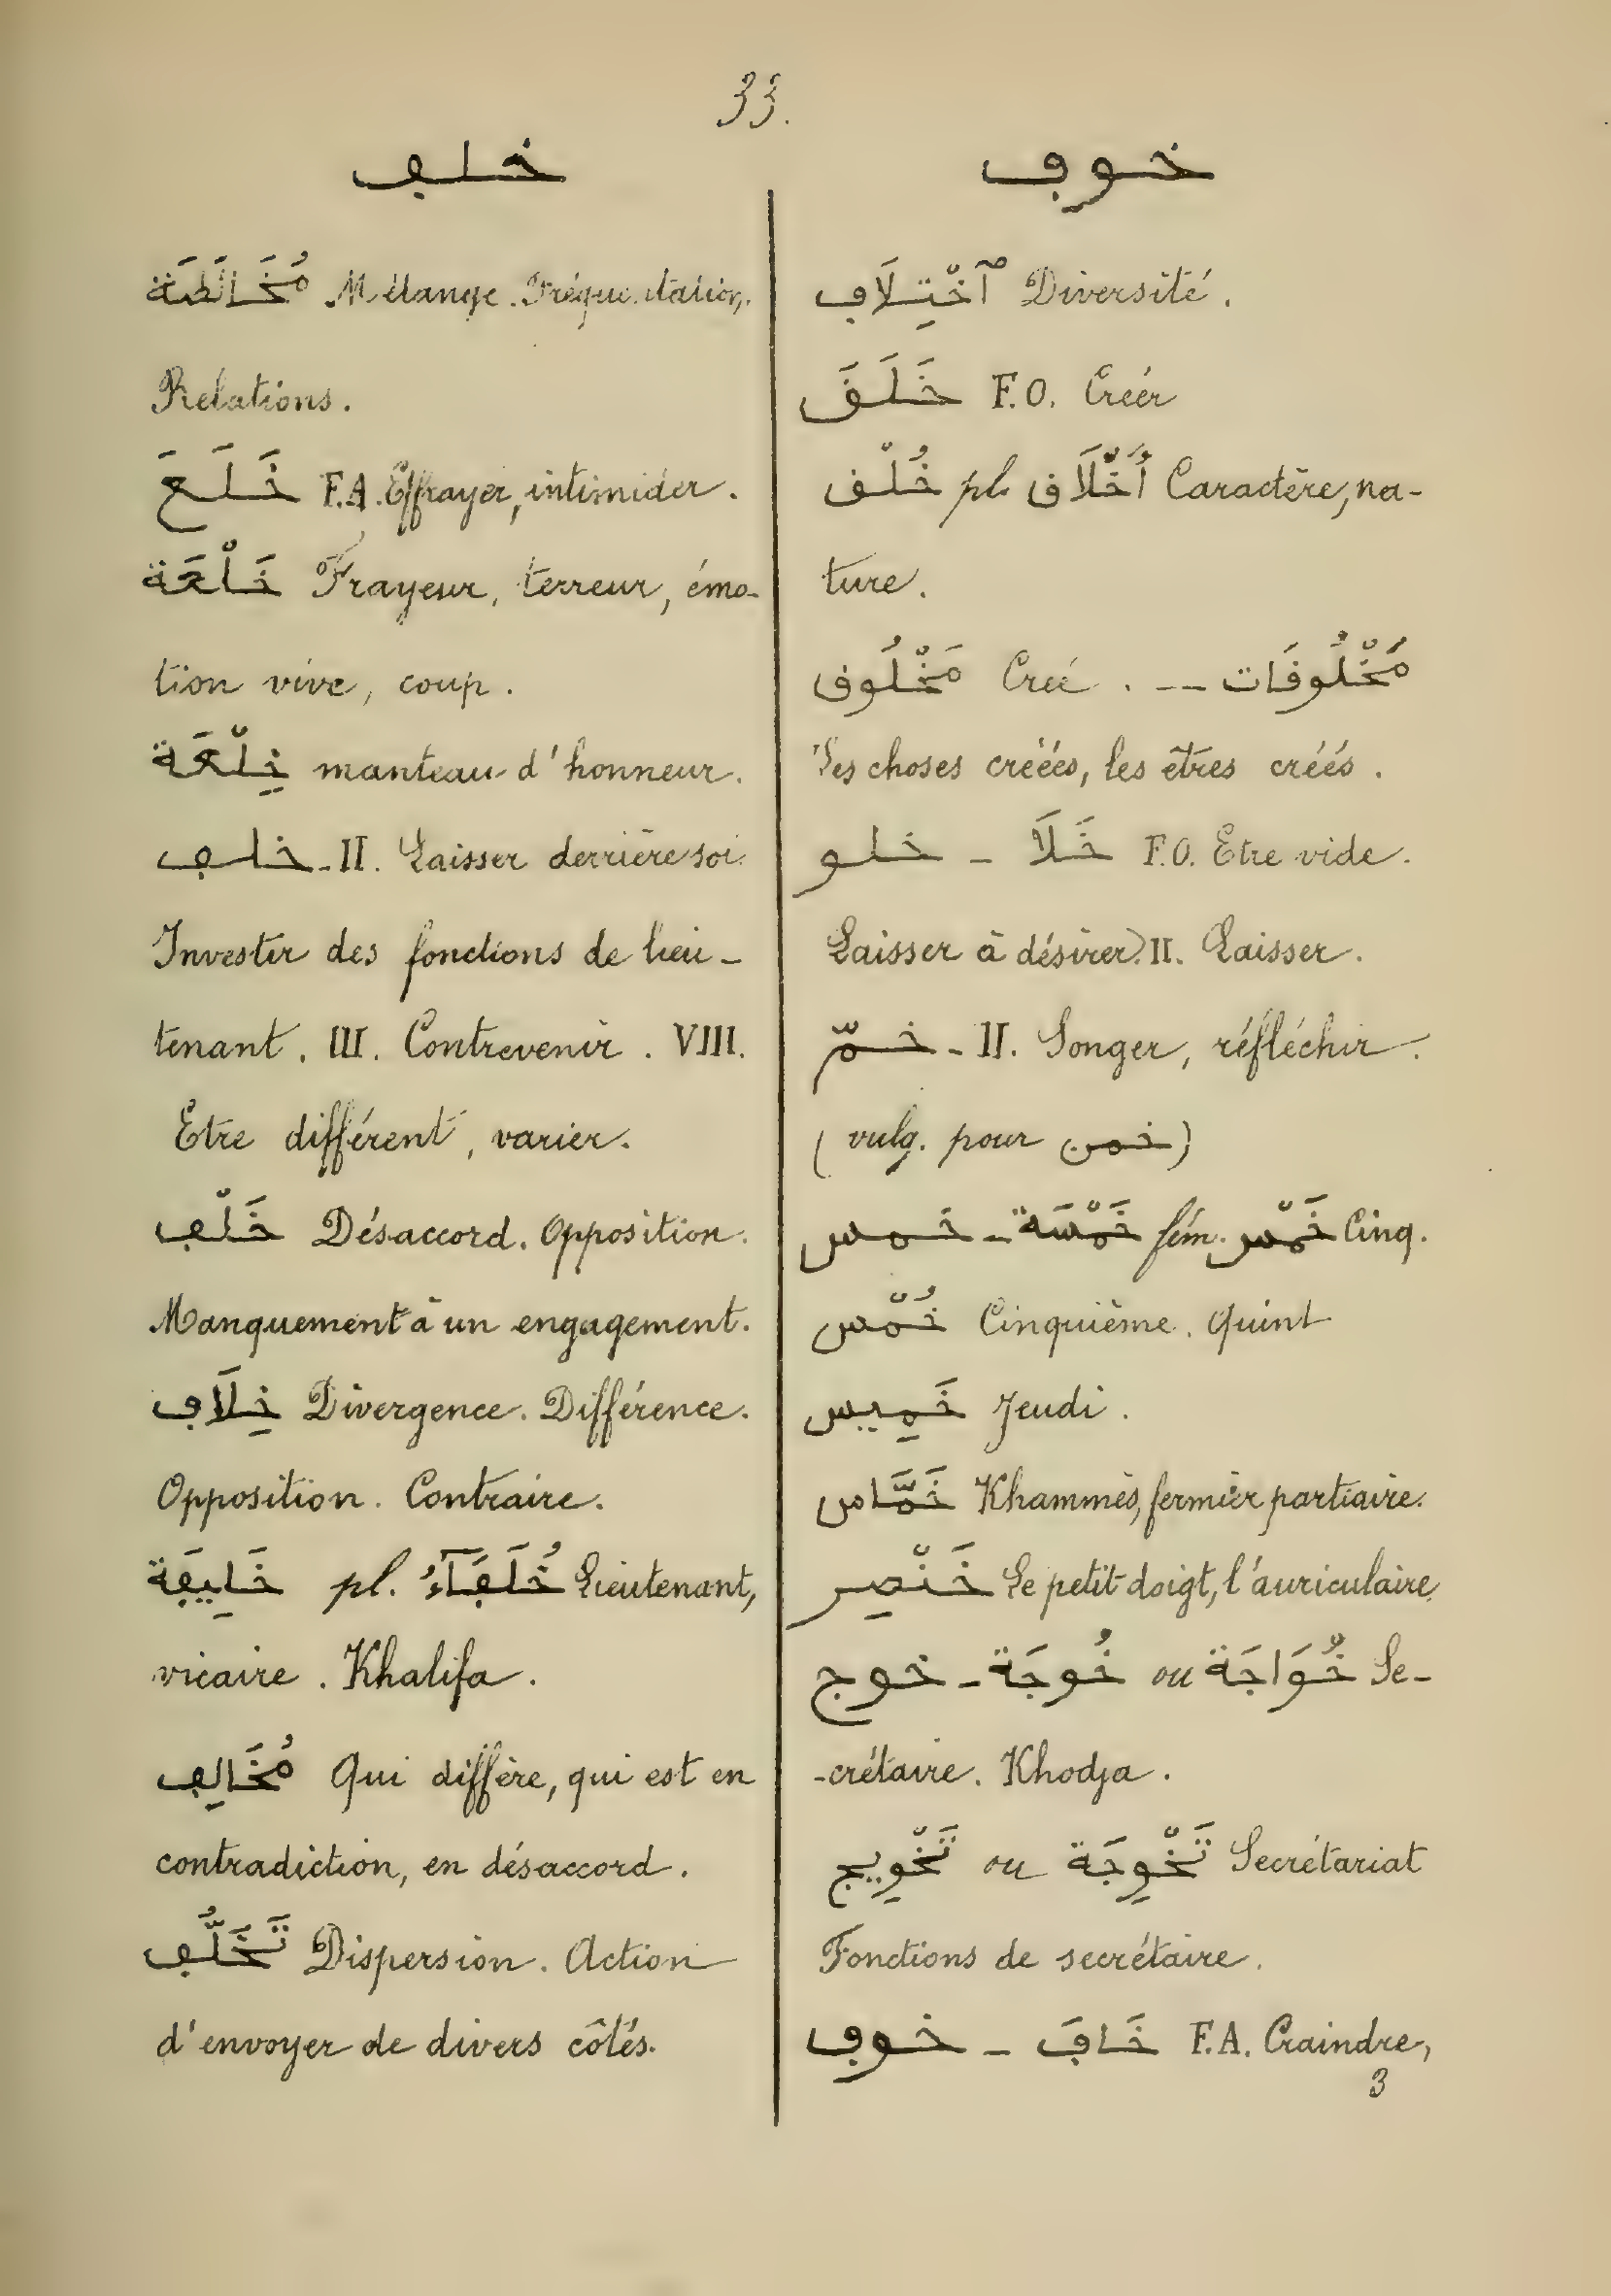 33.
خلف
خوف
مُخَالَطَة Mélange. Fréquentation.
Relations.
خَلَعَ F.A. Effrayer, intimider.
خَلْعَة Frayeur, terreur, émo-
tion vive, coup.
خِلْعَة manteau d'honneur.
خلف - II. Laisser derrière soi.
Investir des fonctions de lieu-
tenant. III. Contrevenir. VIII.
Etre différent, varier.
خَلْف Désaccord. Opposition.
Manquement à un engagement.
خِلَاف Divergence. Différence.
Opposition. Contraire.
خَلِيفَة pl. خُلَفَآءُ Lieutenant,
vicaire. Khalifa.
مُخَالِف Qui diffère, qui est en
contradiction, en désaccord.
تَخَلُّف Dispersion. Action
d'envoyer de divers côtés.
ٱخْتِلَاف Diversité.
خَلَقَ F.O. Créer
خُلْق pl. أَخْلَاق Caractère, na-
ture.
مَخْلُوق Créé. -- مَخْلُوقَات
Les choses créées, les êtres créés.
خلو - خَلَا F.O. Etre vide.
Laisser à désirer. II. Laisser.
خمّ - II. Songer, réfléchir.
(vulg. pour خمن)
خمس - خَمْسَة fém. خَمْس Cinq.
خُمْس Cinquième. Quint
خَمِيس Jeudi.
خَمَّاس Khammès, fermier partiaire.
خَنْصِر Le petit doigt, l'auriculaire.
خوج - خُوجَة ou خُوَاجَة Se-
-crétaire. Khodja.
تَخْوِيج ou تَخْوِجَة Secrétariat
Fonctions de secrétaire.
خوف - خَافَ F.A. Craindre,
3